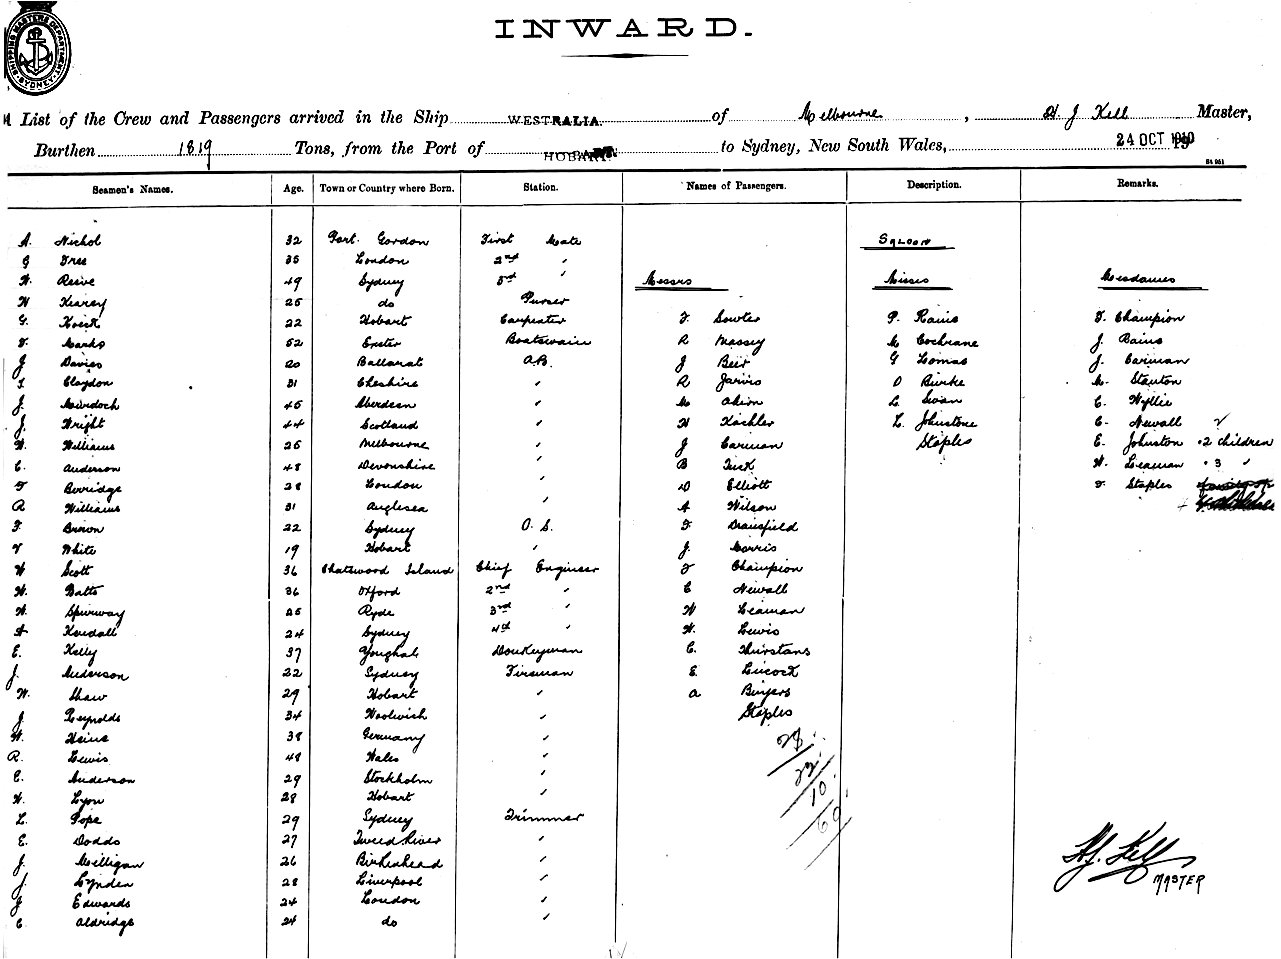 SHIPPING MASTERS DEPARTMENT SYDNEY
INWARD.
A List of the Crew and Passengers arrived in the Ship WESTRALIA of Melbourne, H. J Kell Master,
Burthen 1819 Tons, from the Port of HOBART to Sydney, New South Wales, 24 OCT 1910
Seamen's Names. Age. Town or Country where Born. Station. Names of Passengers. Description. Remarks.
A. Nichol 32 Port Gordon First Mate SALOON
G Tree 35 London 2nd "
H. Reeve 49 Sydney 3rd " Messrs Misses Mesdames
H Kearsy 25 do Purser
G. 22 Hobart Carpenter F. Sowter P. F. Champion
F. Marks 52 Exeter Boatswain R Massey M Cochrane J. Bains
J Davies 20 Ballarat A.B. J Beir G Lomas J. Carman
T Claydon 31 Cheshire " R Jarvis D Burke M. Stanton
J. Murdoch 45 Aberdeen " M L. Swan C. Wyllie
J Wright 44 Scotland " H Kachler L. Johnstone C. Newall
H. Williams 25 Melbourne " J Carman Staples E. Johnston 2 children
C. Anderson 48 Devonshire " B Tuck H. Leaman 3 "
F Berridge 28 London " D Elliott F Staples
R Williams 31 Anglesea " A Wilson
F. Brown 22 Sydney O.S. F. Dransfield
V White 19 Hobart " J. Morris
W Scott 36 Chatswood Island Chief Engineer F Champion
H. Batts 36 Oxford 2nd " C Newall
H. Spurway 25 Ryde 3rd " W Leaman
A Kendall 24 Sydney 4th " H. Lewis
E. Kelly 37 Youghal Donkeyman C. Thurstans
J. Anderson 22 Sydney Fireman E. Lucock
W. Shaw 29 Hobart " A Bingers
J Reynolds 34 Woolwich " Staples
H. Heine 38 Germany " 28
R. Lewis 48 Wales " 22
C. Anderson 29 Stockholm " 10
H. Lyon 28 Hobart " 60
L. Pope 29 Sydney Trimmer
E. Dodds 27 Tweed River "
J. Milligan 26 Birkenhead " H.J. Kell
J. Lynden 28 Liverpool " MASTER
J Edwards 24 London "
C Aldridge 24 do "